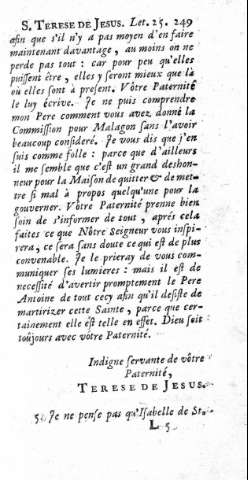 S. TERESE DE JESUS. Let. 25. 249
afin que s'il n'y a pas moyen d'en faire
maintenant davantage, au moins on ne
perde pas tout : car pour peu qu'elles
puissent être, elles y seront mieux que là
où elles sont à present. Vôtre Paternité
le luy écrive. Je ne puis comprendre
mon Pere comment vous avez donné la
Commission pour Malagon sans l'avoir
beaucoup consideré. Je vous dis que j'en
suis comme folle : parce que d'ailleurs
il me semble que c'est un grand deshon-
neur pour la Maison de quitter & de met-
tre si mal à propos quelqu'une pour la
gouverner. Vôtre Paternité prenne bien
soin de s'informer de tout, aprés cela
faites ce que Nôtre Seigneur vous inspi-
rera, ce sera sans doute ce qui est de plus
convenable. Je le prieray de vous com-
muniquer ses lumieres : mais il est de
necessité d'avertir promptement le Pere
Antoine de tout cecy afin qu'il desiste de
martirizer cette Sainte, parce que cer-
tainement elle est telle en effet. Dieu soit
toûjours avec vôtre Paternité.
Indigne servante de vôtre
Paternité,
TERESE DE JESUS.
5. Je ne pense pas qu'Isabelle de St.
L 5